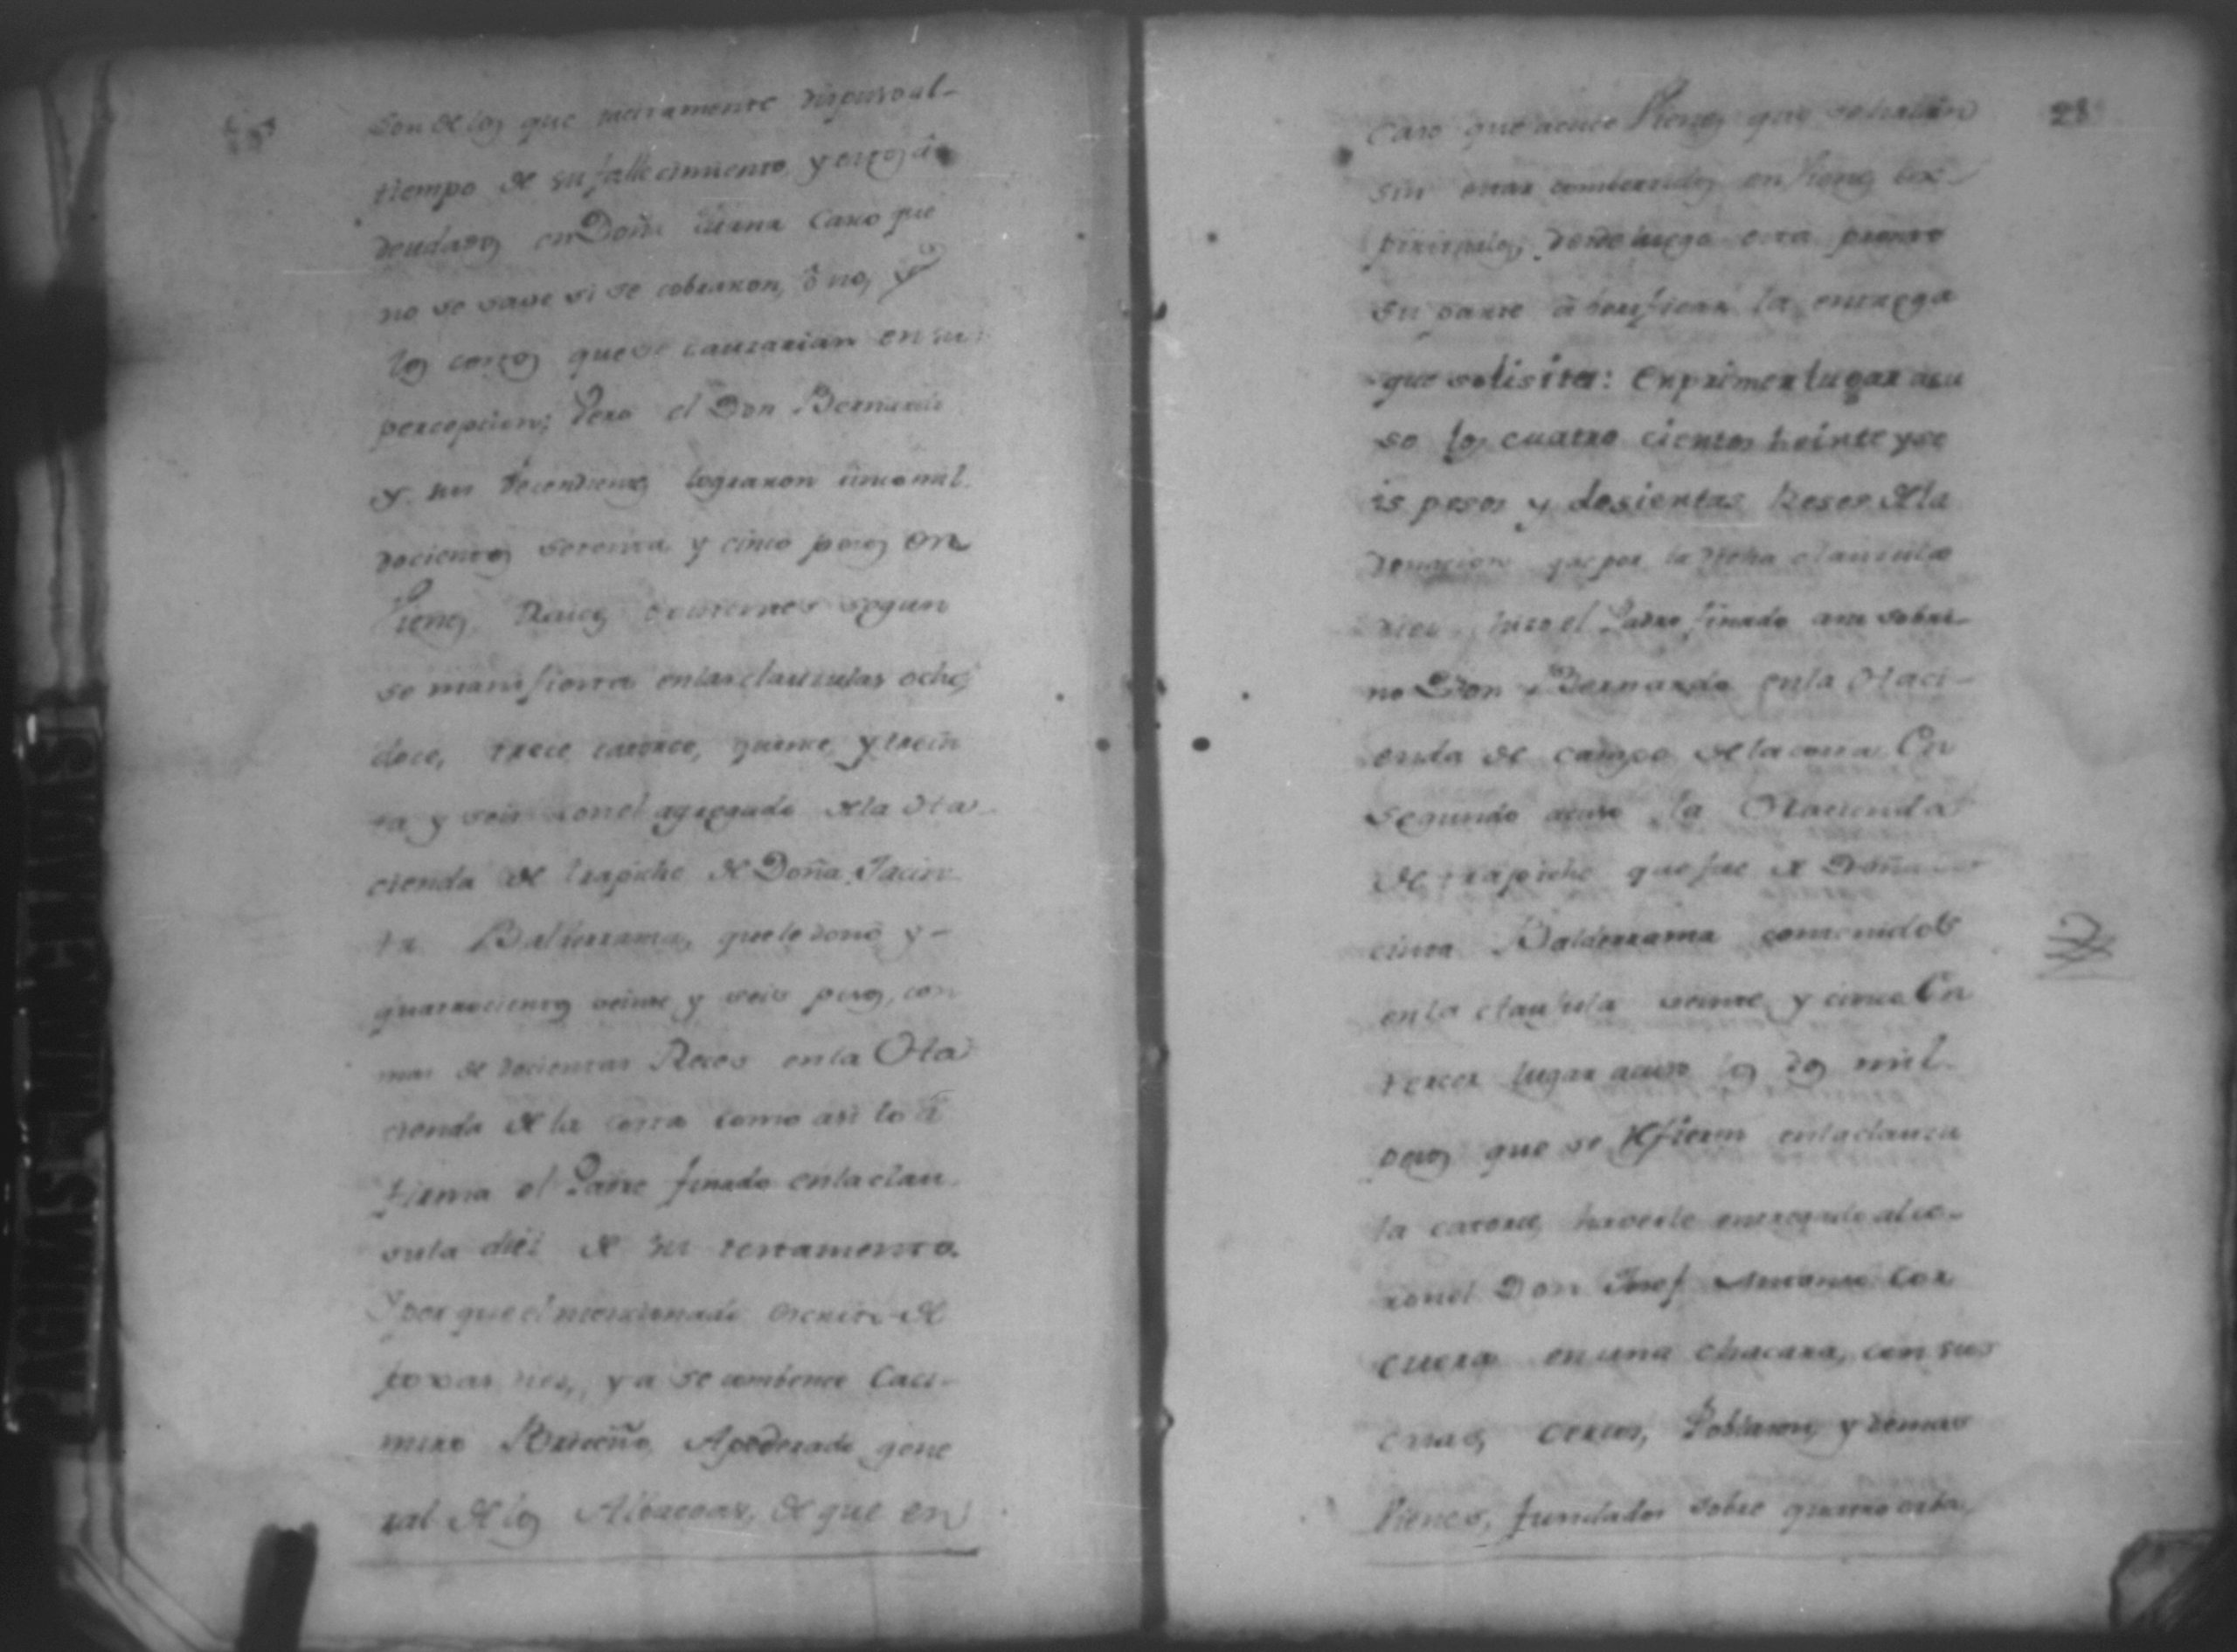 son de los que meramente dispuso al-
tiempo de su fallecimiento, y otros à
deudados en Doña Juana Caro que
no se save si se cobraron, ô no, y
los costos que se causarian en su
percepcion; Pero el Don Bernardo
y sus decendientes lograron cinco mil
docientos setenta y cinco pesos en
Vienes Raices existentes segun
se manifiesta en las clausulas ocho,
doce, trece catorce, quince y trein
ta y seis con el agregado de la Ha
cienda de trapiche de Doña Jacin
ta Balderrama, que le donó y-
quatrocientos veinte y seis pesos, con
mas de docientas Reces en la Ha
cienda de la costa como asi lo â
firma el Padre finado en la clau
sula diez de su testamento.
Y por que el mencionado escrito de
foxas ya se combence Caci-
miro Briceño Apoderado gene
ral de los Albaceas, de que en
28
Caso que acuse Vienes que se hallan
sin estar combertidos en Vienes
desde luego esta pronto
su parte à berificar la entrega
que solisita: En primer lugar acu
so los cuatro cientos beinte y se
is pesos y dosientas Reses de la
donacion que por la dicha clausula
diez hizo el Padre finado a su sobri-
no Don Bernardo en la Haci-
enda de campo de la costa En
segundo acuso la Hacienda
de trapiche que fue de Doña
cinta Balderrama contenido
en la clausula veinte y cinco En
tercer lugar acuso los dos mil
pesos que se refieren en la clausu
la catorce, haverle entregado al co-
ronel Don Josef Antonio Cor
cuera en una chacara, con sus
casas, cercos, Poblason, y demas
Vienes, fundados sobre quatro